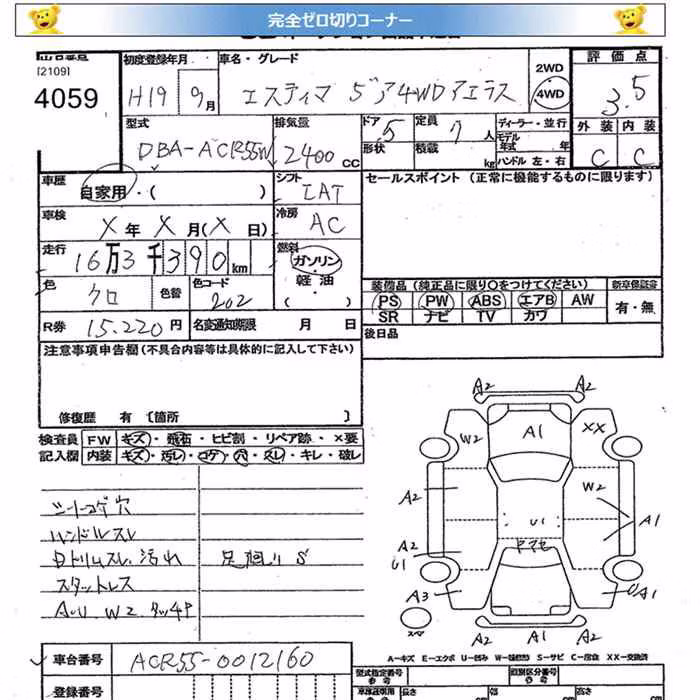 完全ゼロ切りコーナー
[2109]
4059
初度登録年月
H19 9月
車名・グレード
エスティマ 5ドア4WDアエラス
2WD
4WD
評価点
3.5
外装 内装
C C
型式
DBA-ACR55W
排気量
2400cc
ドア 5
形状
定員 7人
積載 kg
ディーラー・並行
モデル年式 年
ハンドル 左・右
車歴
自家用・( )
シフト
IAT
セールスポイント (正常に機能するものに限ります)
車検
X年 X月(X日)
冷房
AC
走行
16万3千390km
燃料
ガソリン
軽油
・( )
色
クロ
色替
色コード
202
装備品 (純正品に限り〇をつけてください)
新車保証書
PS PW ABS エアB AW
有・無
SR ナビ TV カワ
R券 15.220円
名変通知期限 月 日
後日品
注意事項申告欄 (不具合内容等は具体的に記入して下さい)
修復歴 有 〔箇所 〕
検査員 FW キズ・飛石・ヒビ割・リペア跡・×要
記入欄 内装 キズ・汚レ・コゲ・穴・スレ・キレ・破レ
シートコゲ穴
ハンドルスレ
Dトリムスレ、汚れ
足廻りS
スタットレス
AU W2 タッチP
A2 A2
W2 A1 XX
A2 W2
U1 A1
A2
U1
A3 UA1
スペア
A2 A1 A2
A-キズ E-エクボ U-凹み W-補修跡 S-サビ C-腐食 XX-交換済
車台番号 ACR55-0012160
登録番号
型式指定番号
類別区分番号
参考 参考
長さ 幅 高さ
cm cm